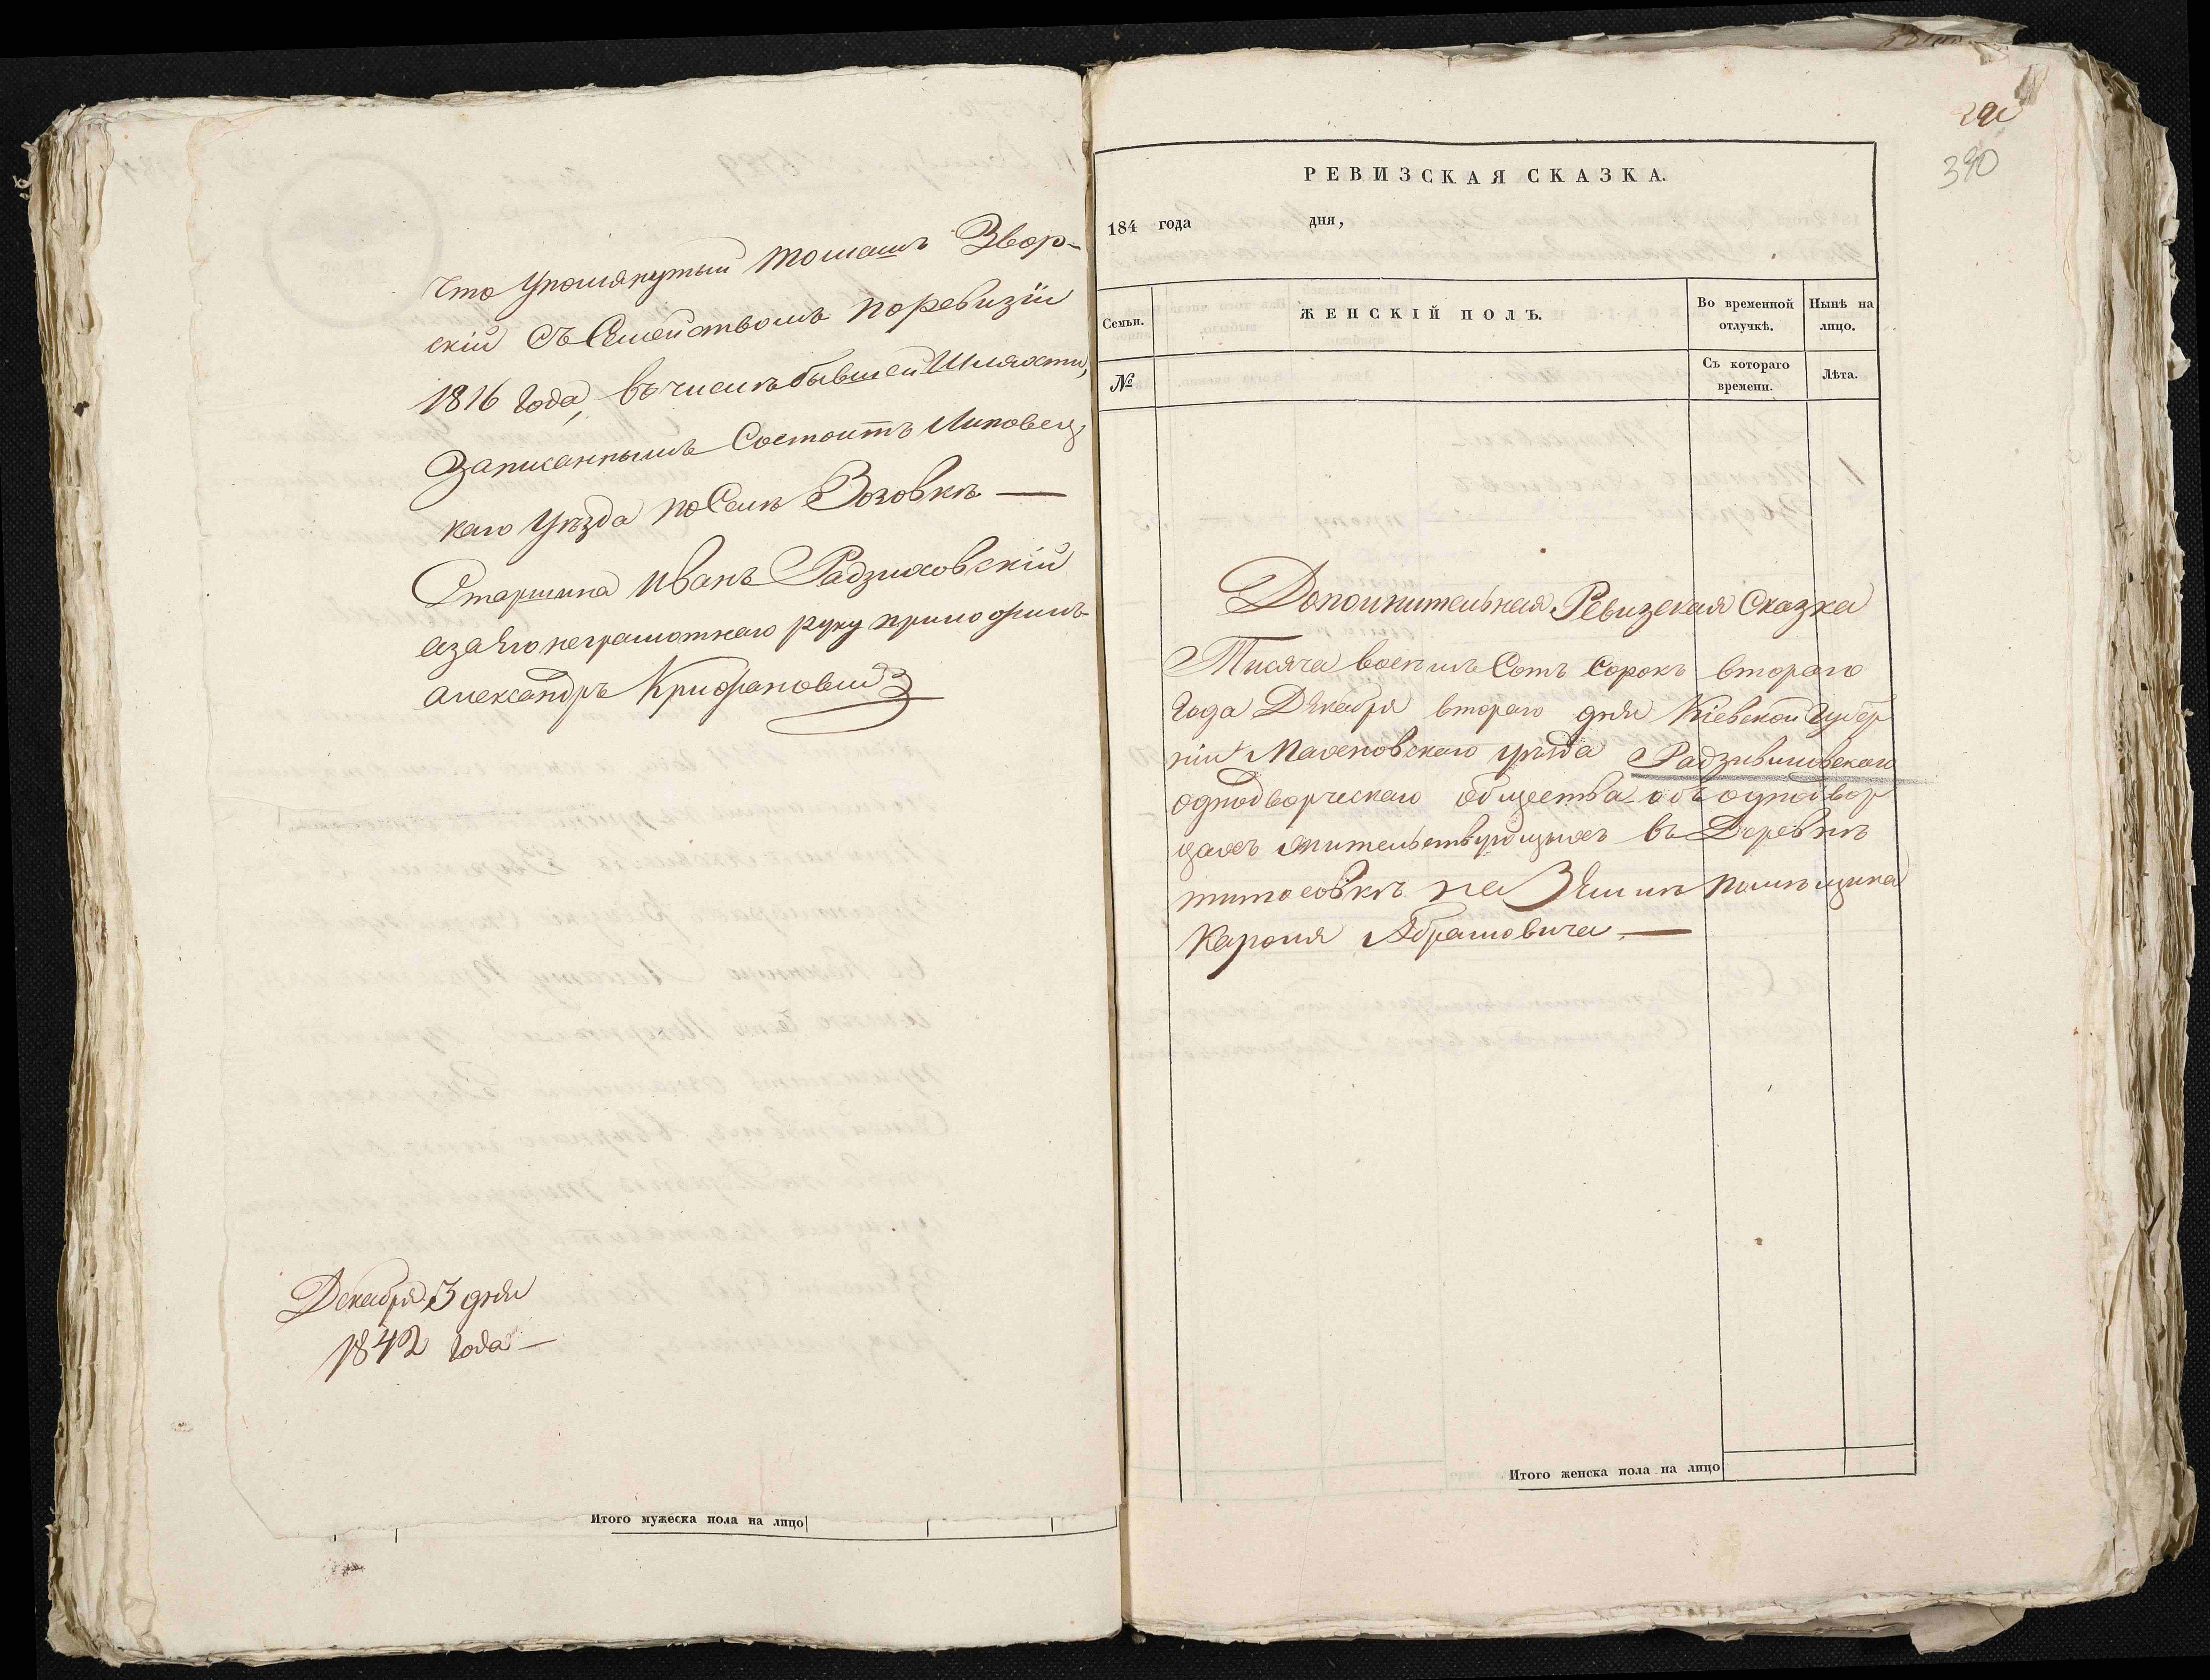 Что упомянутый Томашъ Звор-
скій съ Семействомъ поревизіи
1816 года, въ числѣ бывшей Шляхты,
Записаннымъ Состоитъ Липовец
каго уѣзда по Селѣ Зозовкѣ —
Старшина Иванъ Радзиховскій
а за Его неграмотнаго руку приложилъ
Александръ Крижановскій
Декабря 3 дня
1842 года —
Итого мужеска пола на лицо
390
РЕВИЗСКАЯ СКАЗКА.
184 года дня,
Семьи. ЖЕНСКІЙ ПОЛЪ. Во временной отлучкѣ. Нынѣ на лицо.
№ Съ котораго времени. Лѣта.
Дополнительная Ревизская Сказка
Тисяча восемъ Сотъ Сорокъ втораго
Года Декабря втораго дня Кіевской Губер
ніи Махновскаго уѣзда Радзивиловскаго
однодворческаго общества объ однодвор
цахъ жительствующихъ въ Деревнѣ
титосовкѣ на Землѣ помѣщика
Кароля Абрамовича —
Итого женска пола на лицо